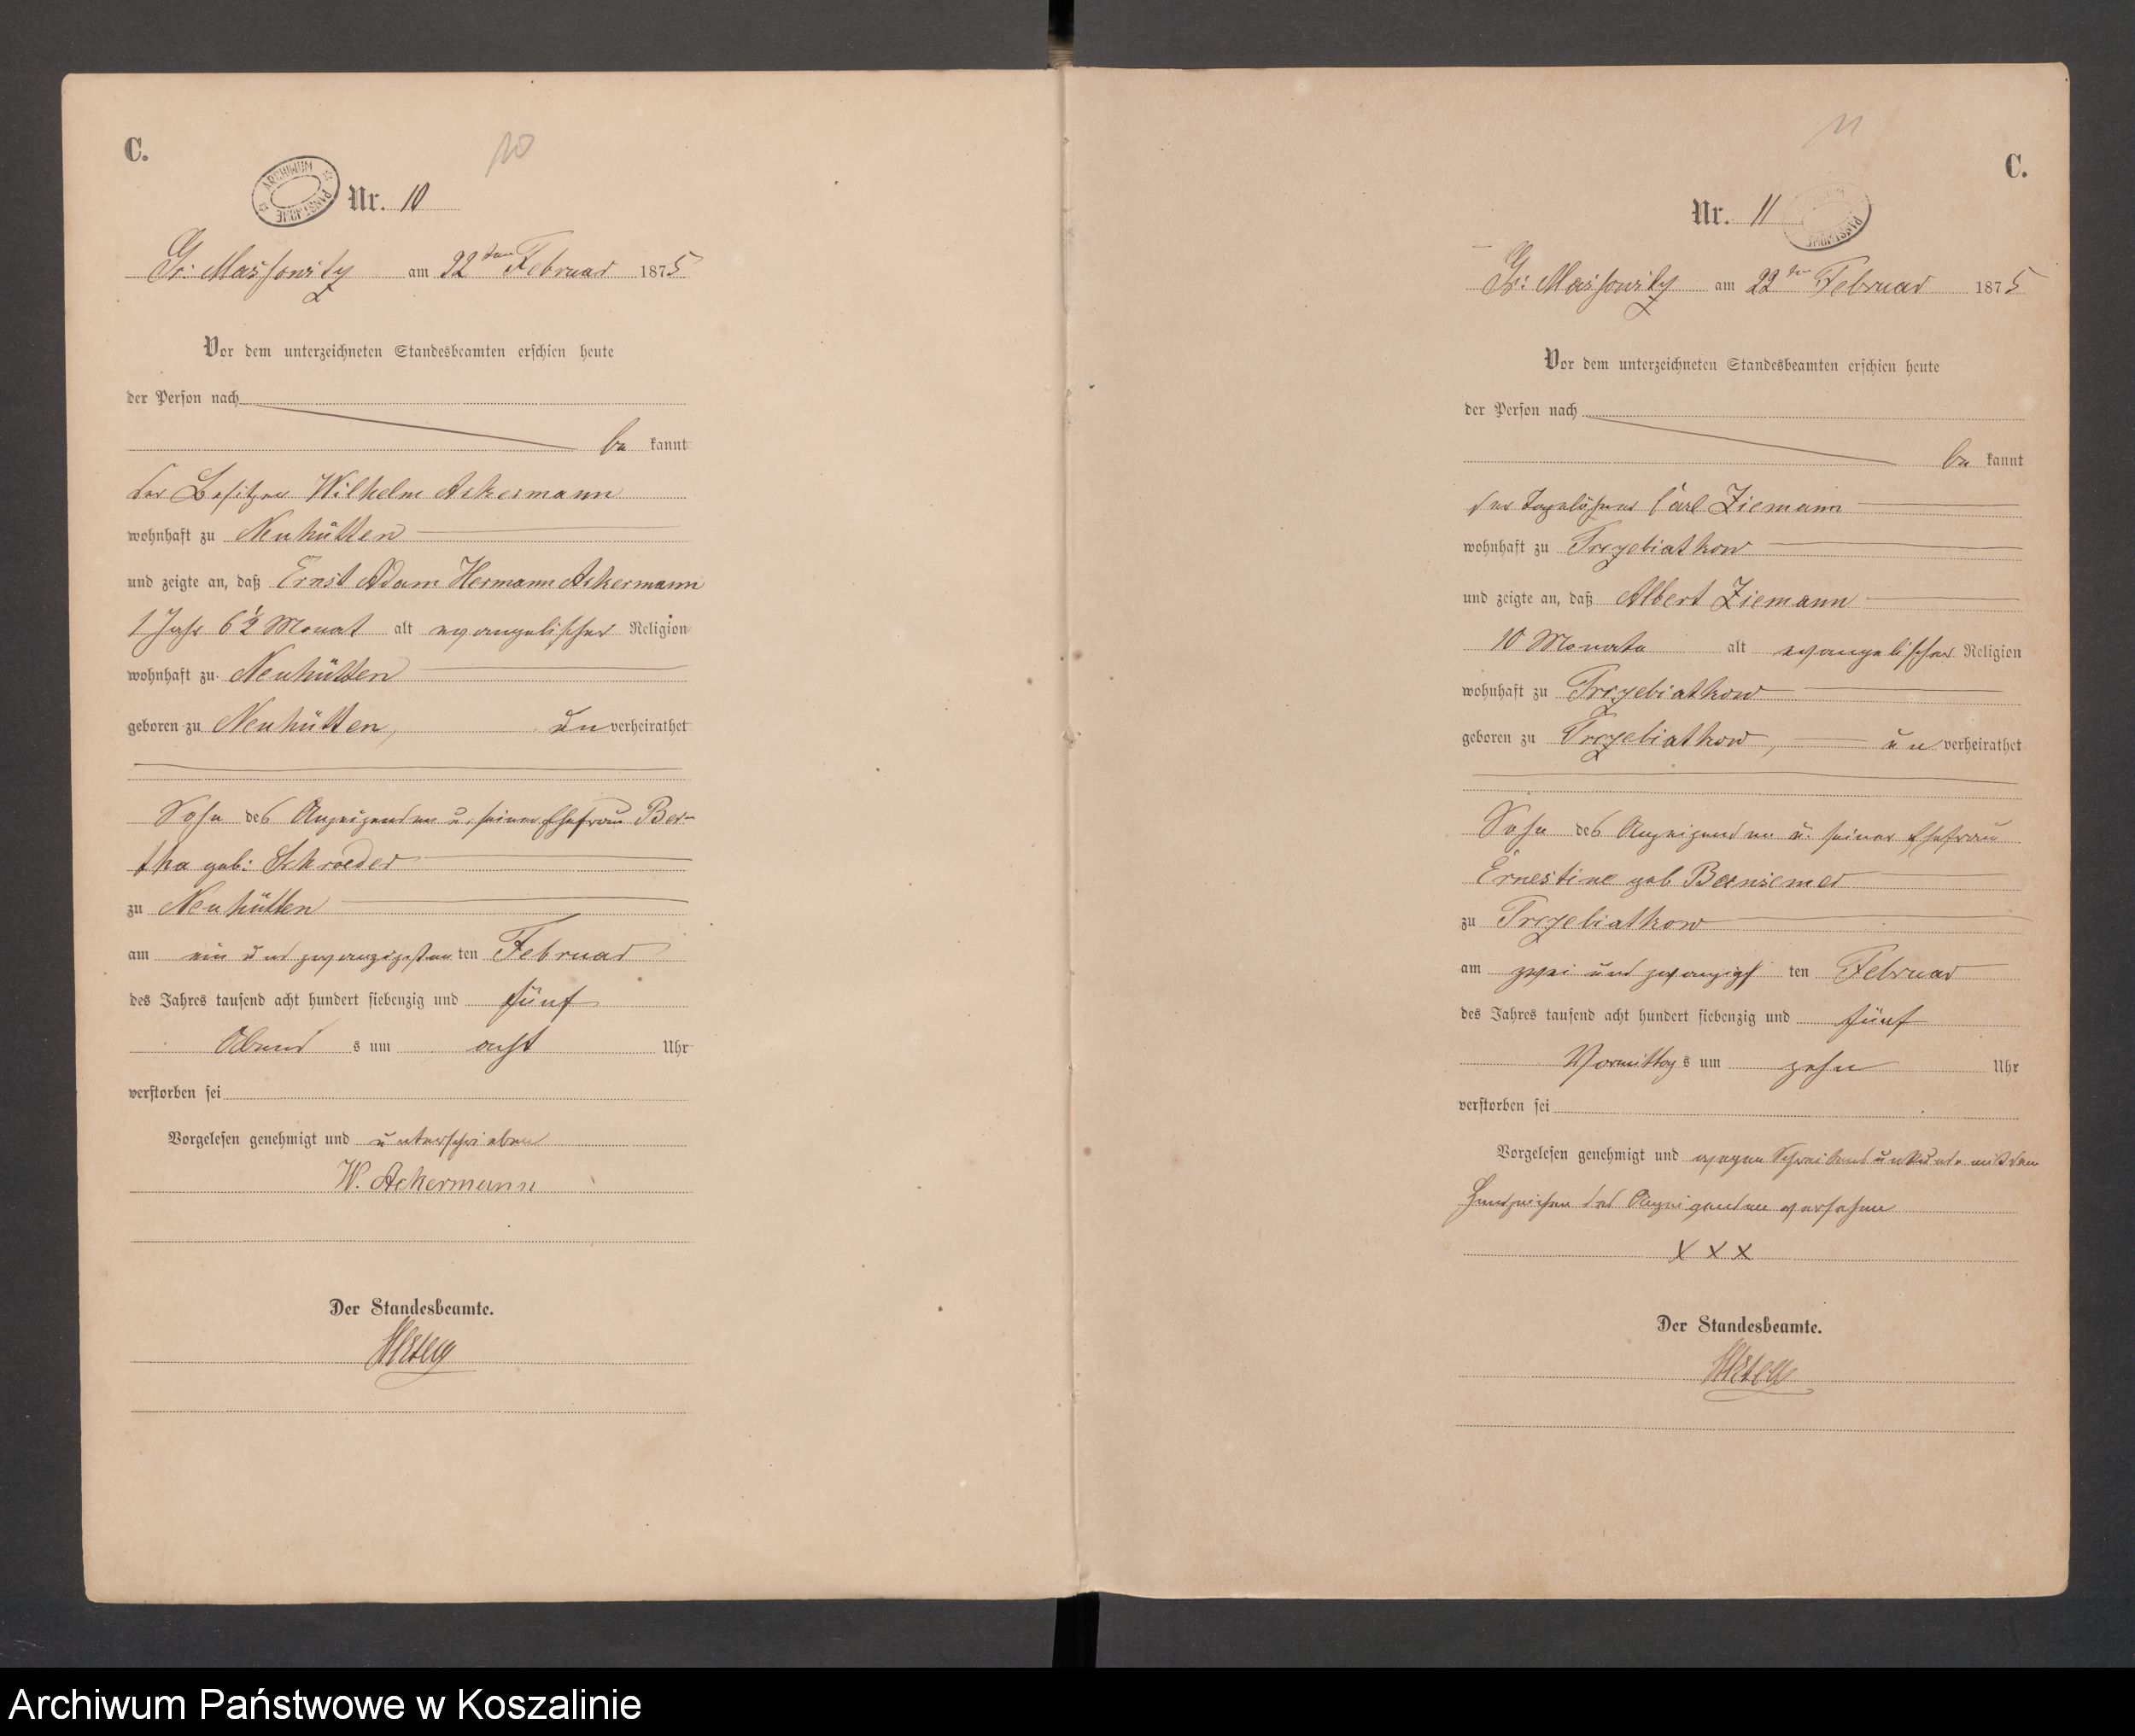 C.
10
ARCHIWUM PAŃSTWOWE
Nr. 10
Gr: Massowitz am 22ten Februar 1875
Vor dem unterzeichneten Standesbeamten erschien heute
der Person nach
be kannt
der Besitzer Wilhelm Ackermann
wohnhaft zu Neuhütten
und zeigte an, daß Ernst Adam Hermann Ackermann
1 Jahr 6½ Monat alt evangelischer Religion
wohnhaft zu Neuhütten
geboren zu Neuhütten, un verheirathet
Sohn des Anzeigenden u. seiner Ehefrau Ber-
tha geb: Schroeder
zu Neuhütten
am ein und zwanzigsten ten Februar
des Jahres tausend acht hundert siebenzig und fünf
Abend s um acht Uhr
verstorben sei
Vorgelesen genehmigt und unterschrieben
W. Ackermann
Der Standesbeamte.
11
C.
Nr. 11
PAŃSTWOWE
Gr: Massowitz am 22ten Februar 1875
Vor dem unterzeichneten Standesbeamten erschien heute
der Person nach
be kannt
der Tagelöhner Carl Ziemann
wohnhaft zu Trzebiatkow
und zeigte an, daß Albert Ziemann
10 Monate alt evangelischer Religion
wohnhaft zu Trzebiatkow
geboren zu Trzebiatkow, un verheirathet
Sohn des Anzeigenden u. seiner Ehefrau
Ernestine geb
zu Trzebiatkow
am zwei und zwanzigs ten Februar
des Jahres tausend acht hundert siebenzig und fünf
Vormittag s um zehn Uhr
verstorben sei
Vorgelesen genehmigt und wegen Schreibensunkunde mit dem
Handzeichen des Anzeigenden versehen
X X X
Der Standesbeamte.
Archiwum Państwowe w Koszalinie